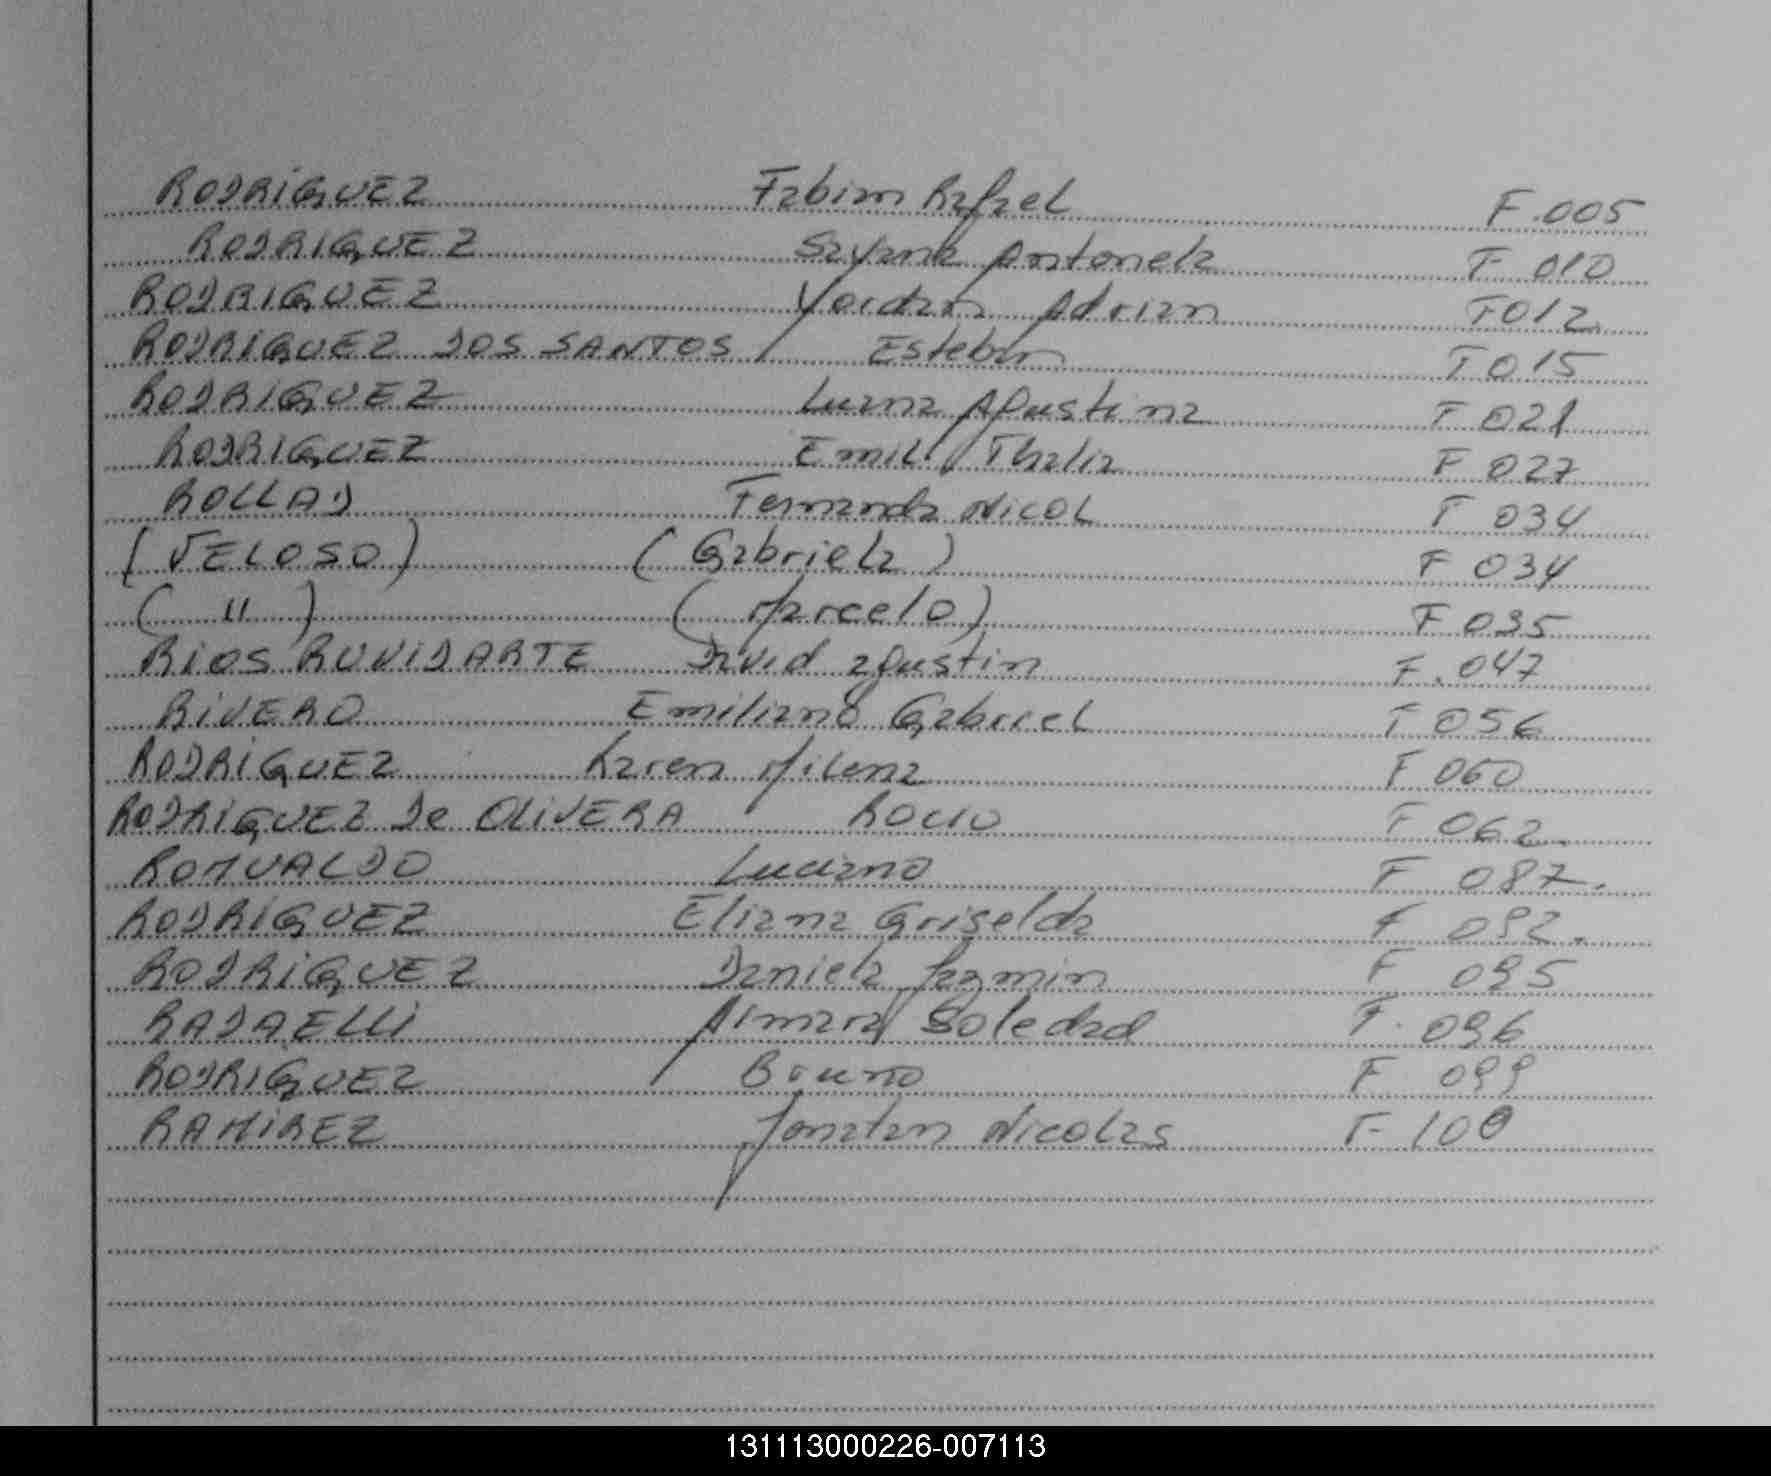 RODRIGUEZ Fabian Rafael F.005
RODRIGUEZ Sayana Antonela F 010
RODRIGUEZ Yordan Adrian F012
RODRIGUEZ DOS SANTOS Esteban F015
RODRIGUEZ Luana Agustina F 021
RODRIGUEZ Emily Thalia F 027
ROLLAD Fernanda Nicol F 034
(VELOSO) (Gabriela) F 034
( " ) (Marcelo) F 035
RIOS RUVIDARTE David agustin F.047
RIVERO Emiliano Gabriel F 056
RODRIGUEZ Karen Milena F 060
RODRIGUEZ De OLIVERA ROCIO F 062
ROMUALDO Luciano F 087.
RODRIGUEZ Eliana Griselda F 092.
RODRIGUEZ Daniela Yazmin F 095
RADAELLI Aimara Soledad F. 096
RODRIGUEZ Bruno F 099
RAMIREZ Jonatan Nicolas F-100
131113000226-007113